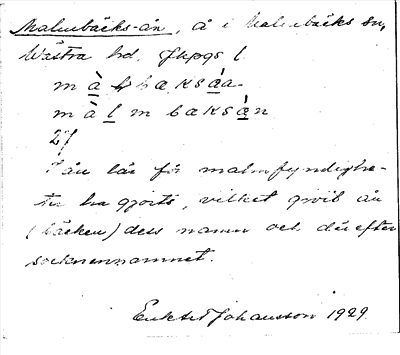 Malmbäcks-ån, å i Malmbäcks sn,
Västra hd. Jkpgs l.
m à l m b a k s á n
2/
I ån lär för malmfyndighe-
ter ha gjorts, vilket givit ån
(bäcken) dess namn och därefter
sockennamnet.
Johansson 1929.